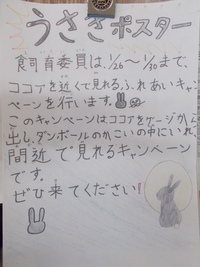 うさぎポスター
飼育委員は、1/26～1/30まで、
ココアを近くで見れる、ふれあいキャン
ペーンを行います。
このキャンペーンはココアをケージから
出し、ダンボールのかこいの中にいれ、
間近で見れるキャンペーン
です。
ぜひ来てください!